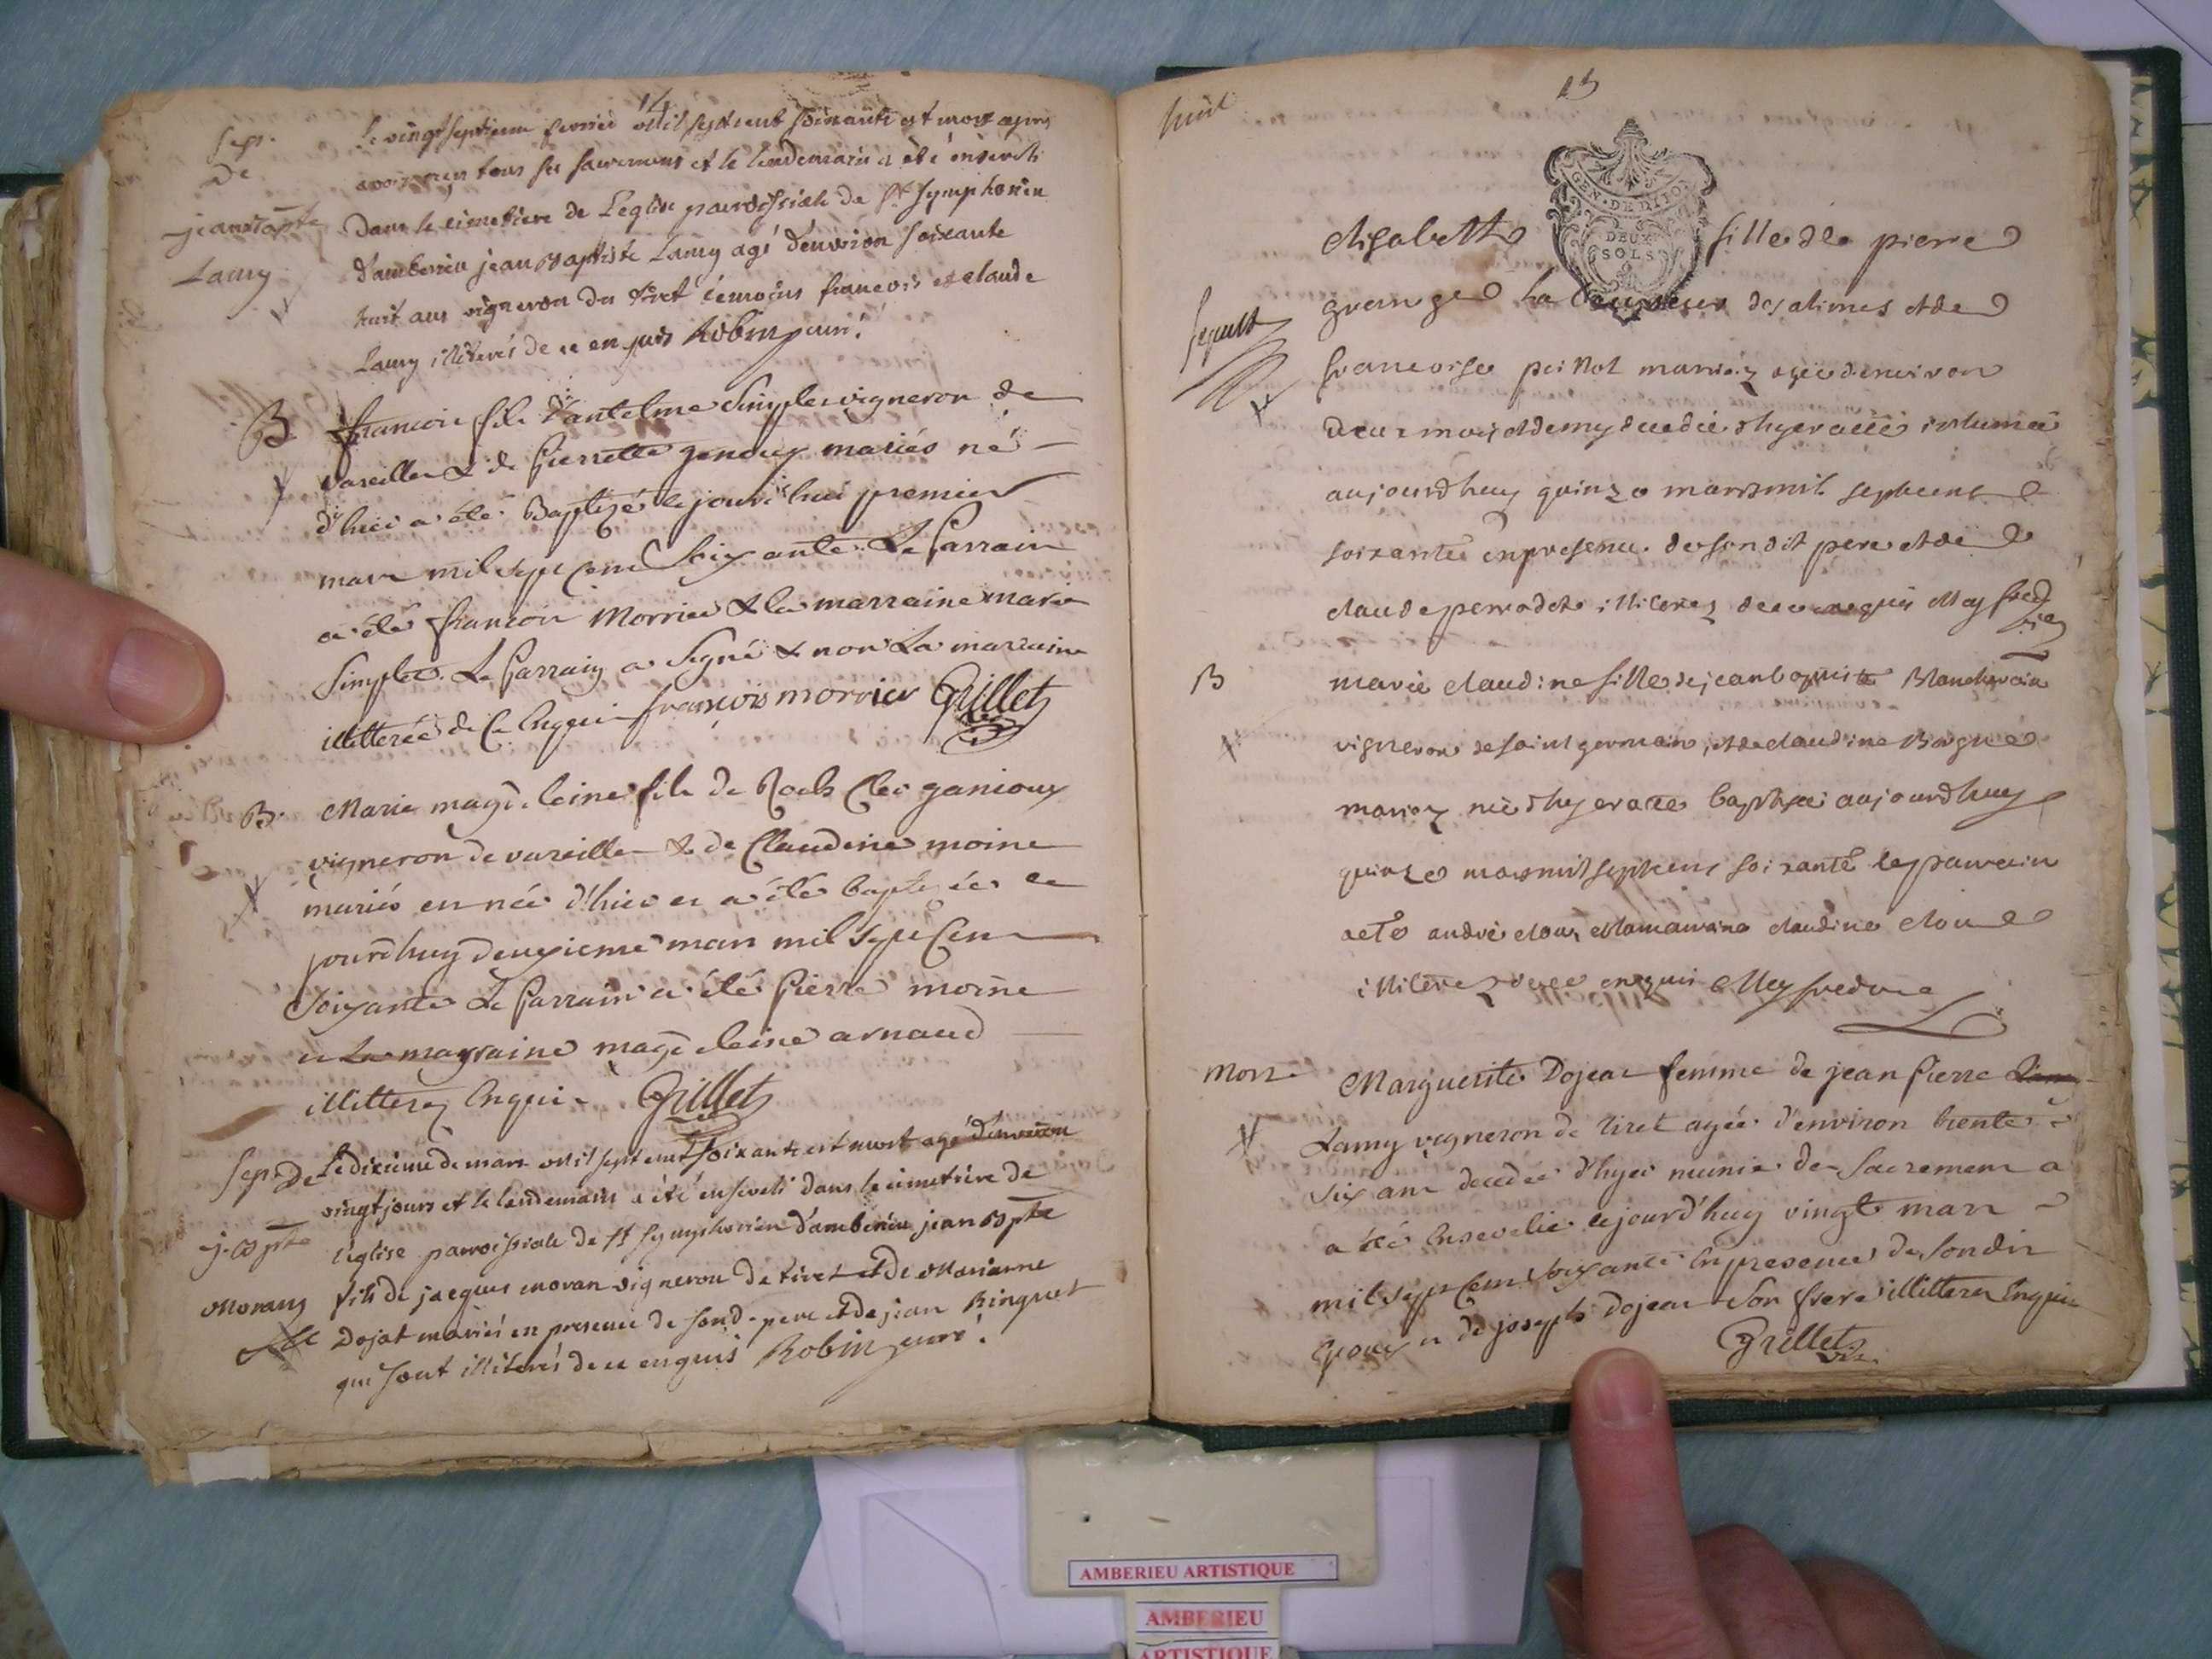 14
sep.
De
jean Bapte
Lamy
Le vingt septieme fevrier mil sept cent soixante est mort apres
avoir reçu tous ses sacremens et le lendemain a été enseveli
dans le cimetiere de L'eglise parroissiale de St symphorien
d'amberieu jean Baptiste Lamy agé d'environ soixante
huit ans vigneron du tiret temoins francois et claude
Lamy illiterés de ce enquis Robin curé.
B
francois fils d'antelme Simplex vigneron de
vareille & de Pierrette genoux mariés né
d'hier a été Baptizé le jourd'hui premier
mars mil sept cent Soixante Le Parrain
a été francois Morrier & la marraine marie
Simplex Le Parrain a Signé & non La marraine
illitterée de Ce Enquis françois morrier Grillet
B.
Marie magdeleine file de Roch Cler ganioux
vigneron de vareille & de Claudine moine
mariés en née d'hier et a été baptizée ce
jourdhuy deuxieme mars mil sept Cent
Soixante Le Parrain a été Pierre moine
et La marraine magdeleine arnaud
illitterez Enquis Grillet
sep. De
j. Bpte
Moran
Le dixieme de mars mil sept cent soixante est mort agé d'environ
vingt jours et le lendemain a été enseveli dans le cimetiere de
l'eglise parroissiale de St symphorien d'amberieu jean Bpte
fils de jacques moran vigneron de tiret et de Marianne
Dojat mariés en presence de sond. pere et de jean Ringuet
qui sont illiterés de ce enquis Robin curé.
huit
15
GEN. DE DIJON
DEUX
SOLS
Elisabeth fille de pierre
grange des alimes et de
francoise peillot mariez agée d'environ
deux mois et demy decedée d'hyer a été inhumée
aujourdhuy quinze mars mil septcent
soixante en presence de son dit pere et de
claude perrodet illiterez de ce enquis Meyfred
B
marie claudine fille de jean baptiste Blanchard
vigneron de saint germain, et de claudine
mariez née d'hyer a été baptisée aujourdhuy
quinze mars mil septcent soixante le parrain
a été andré cloux et la marraine claudine cloux
illiterez de ce enquis Meyfred
Mort
Marguerite Dojean femme de jean Pierre
Lamy vigneron de tiret agée d'environ trente
six ans decedée d'hyer munie des Sacremens a
a été Ensevelie cejourd'huy vingt mars
mil sept Cent Soixante En presence de Son dit
Epoux et de joseph dojean Son frere illitterez Enquis
Grillet
AMBERIEU ARTISTIQUE
AMBERIEU
ARTISTIQUE